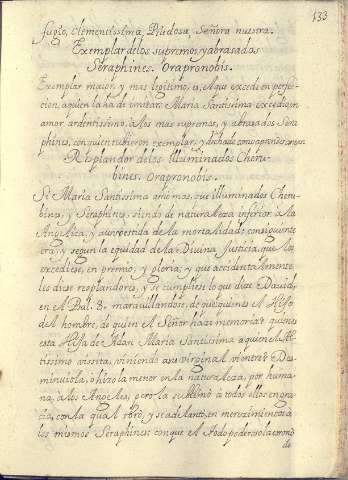 133
fugio, Clementissima, Piadosa, Señora nuestra.
Exemplar de los supremos, y abrasados
Seraphines. Ora pro nobis.
Exemplar maior, y mas legitimo, es, Aquel excede en perfec-
cion, a quien la ha de imitar: Maria Santissima excedio, en
amor ardentissimo, a los mas supremos, y abrasados Sera
phines, con que en tubieron exemplar, y
Resplandor de los Illuminados Cheru-
bines. Ora pro nobis.
Si Maria Santissima que illuminados Cheru
bines, y Seraphines, siendo de naturaleza inferior a la
Angelica, y aun vestida de la mortalidad; consiguiente
era, y segun la equidad de la Divina Justicia, que los
excediese, en premio, y gloria; y que accidentalmente
les diese resplandores, y se cumpliese lo que dice David,
en el Psal. 8. maravillandose, de que quien es el Hijo
del hombre, de quien el Señor hace memoria? quien es
esta Hija de Adan Maria Santissima a quien el Al-
tissimo vissita, viniendo a su virginal vientre? Dis-
minuiola, o hizola menor en la naturaleza, por huma
na, a los Angeles, pero la sublimó a todos ellos en gra
cia, con la qual obró, y se adelantó, en merecimientos a
los mismos Seraphines: con que el Todo poderoso la coronó
de